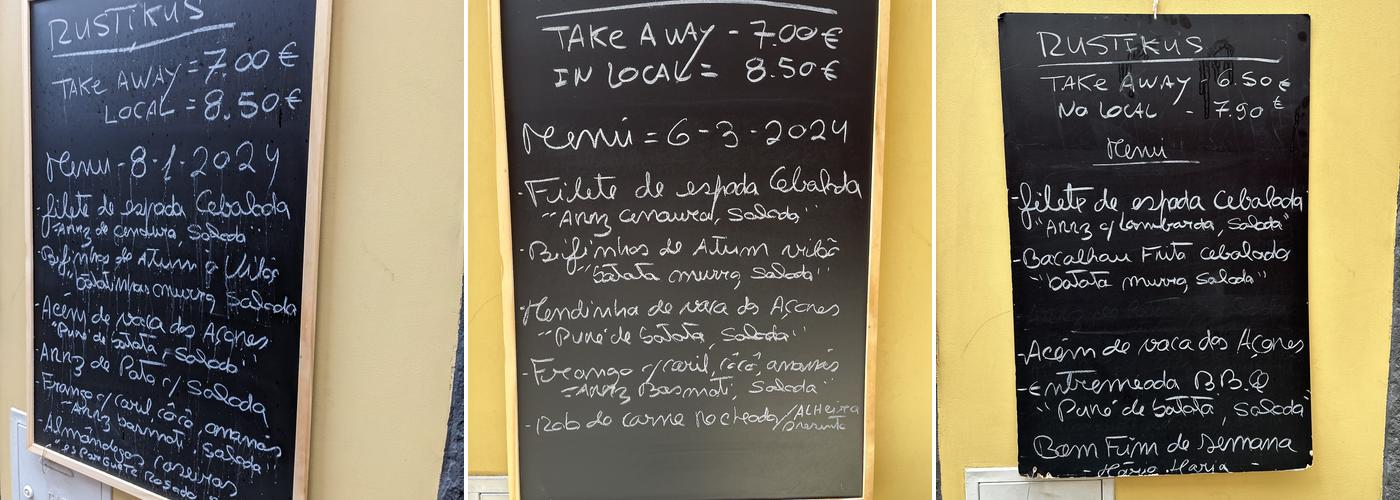 RUSTIKUS
TAKE AWAY = 7.00 €
LOCAL = 8.50 €
Menu - 8-1-2024
- filete de espada Cebolada
"Arroz de cenoura, Salada"
- Bifinhos de Atum a Vilão
"batatinhas murro, Salada
- Acém de vaca dos Açores
"Puré de batata, salada"
- Arroz de Pato c/ Salada
- Frango c/ caril côcô, ananás
"Arroz basmati, Salada"
- Almôndegas caseiras
"esparguete
TAKE AWAY - 7.00 €
IN LOCAL = 8.50 €
Menú = 6-3-2024
- Filete de espada Cebolada
"Arroz cenoura, Salada"
- Bifinhos de Atum vilão
"batata murro, Salada"
- Mendinha de vaca dos Açores
"Puré de batata, Salada"
- Frango c/ caril, côcô, ananás
"Arroz Basmati, Salada"
- Rolo de carne recheado / ALHeira
presunto
RUSTIKUS
TAKE AWAY 6.50 €
No LOCAL - 7.90 €
Menú
- filete de espada Cebolada
"Arroz c/ Lombarda, Salada"
- Bacalhau Frito Cebolada
"batata murro, Salada"
- Acém de vaca dos Açores
- Entremeada B.B.Q
"Puré de batata, salada"
Bom Fim de semana
- Mário Maria -